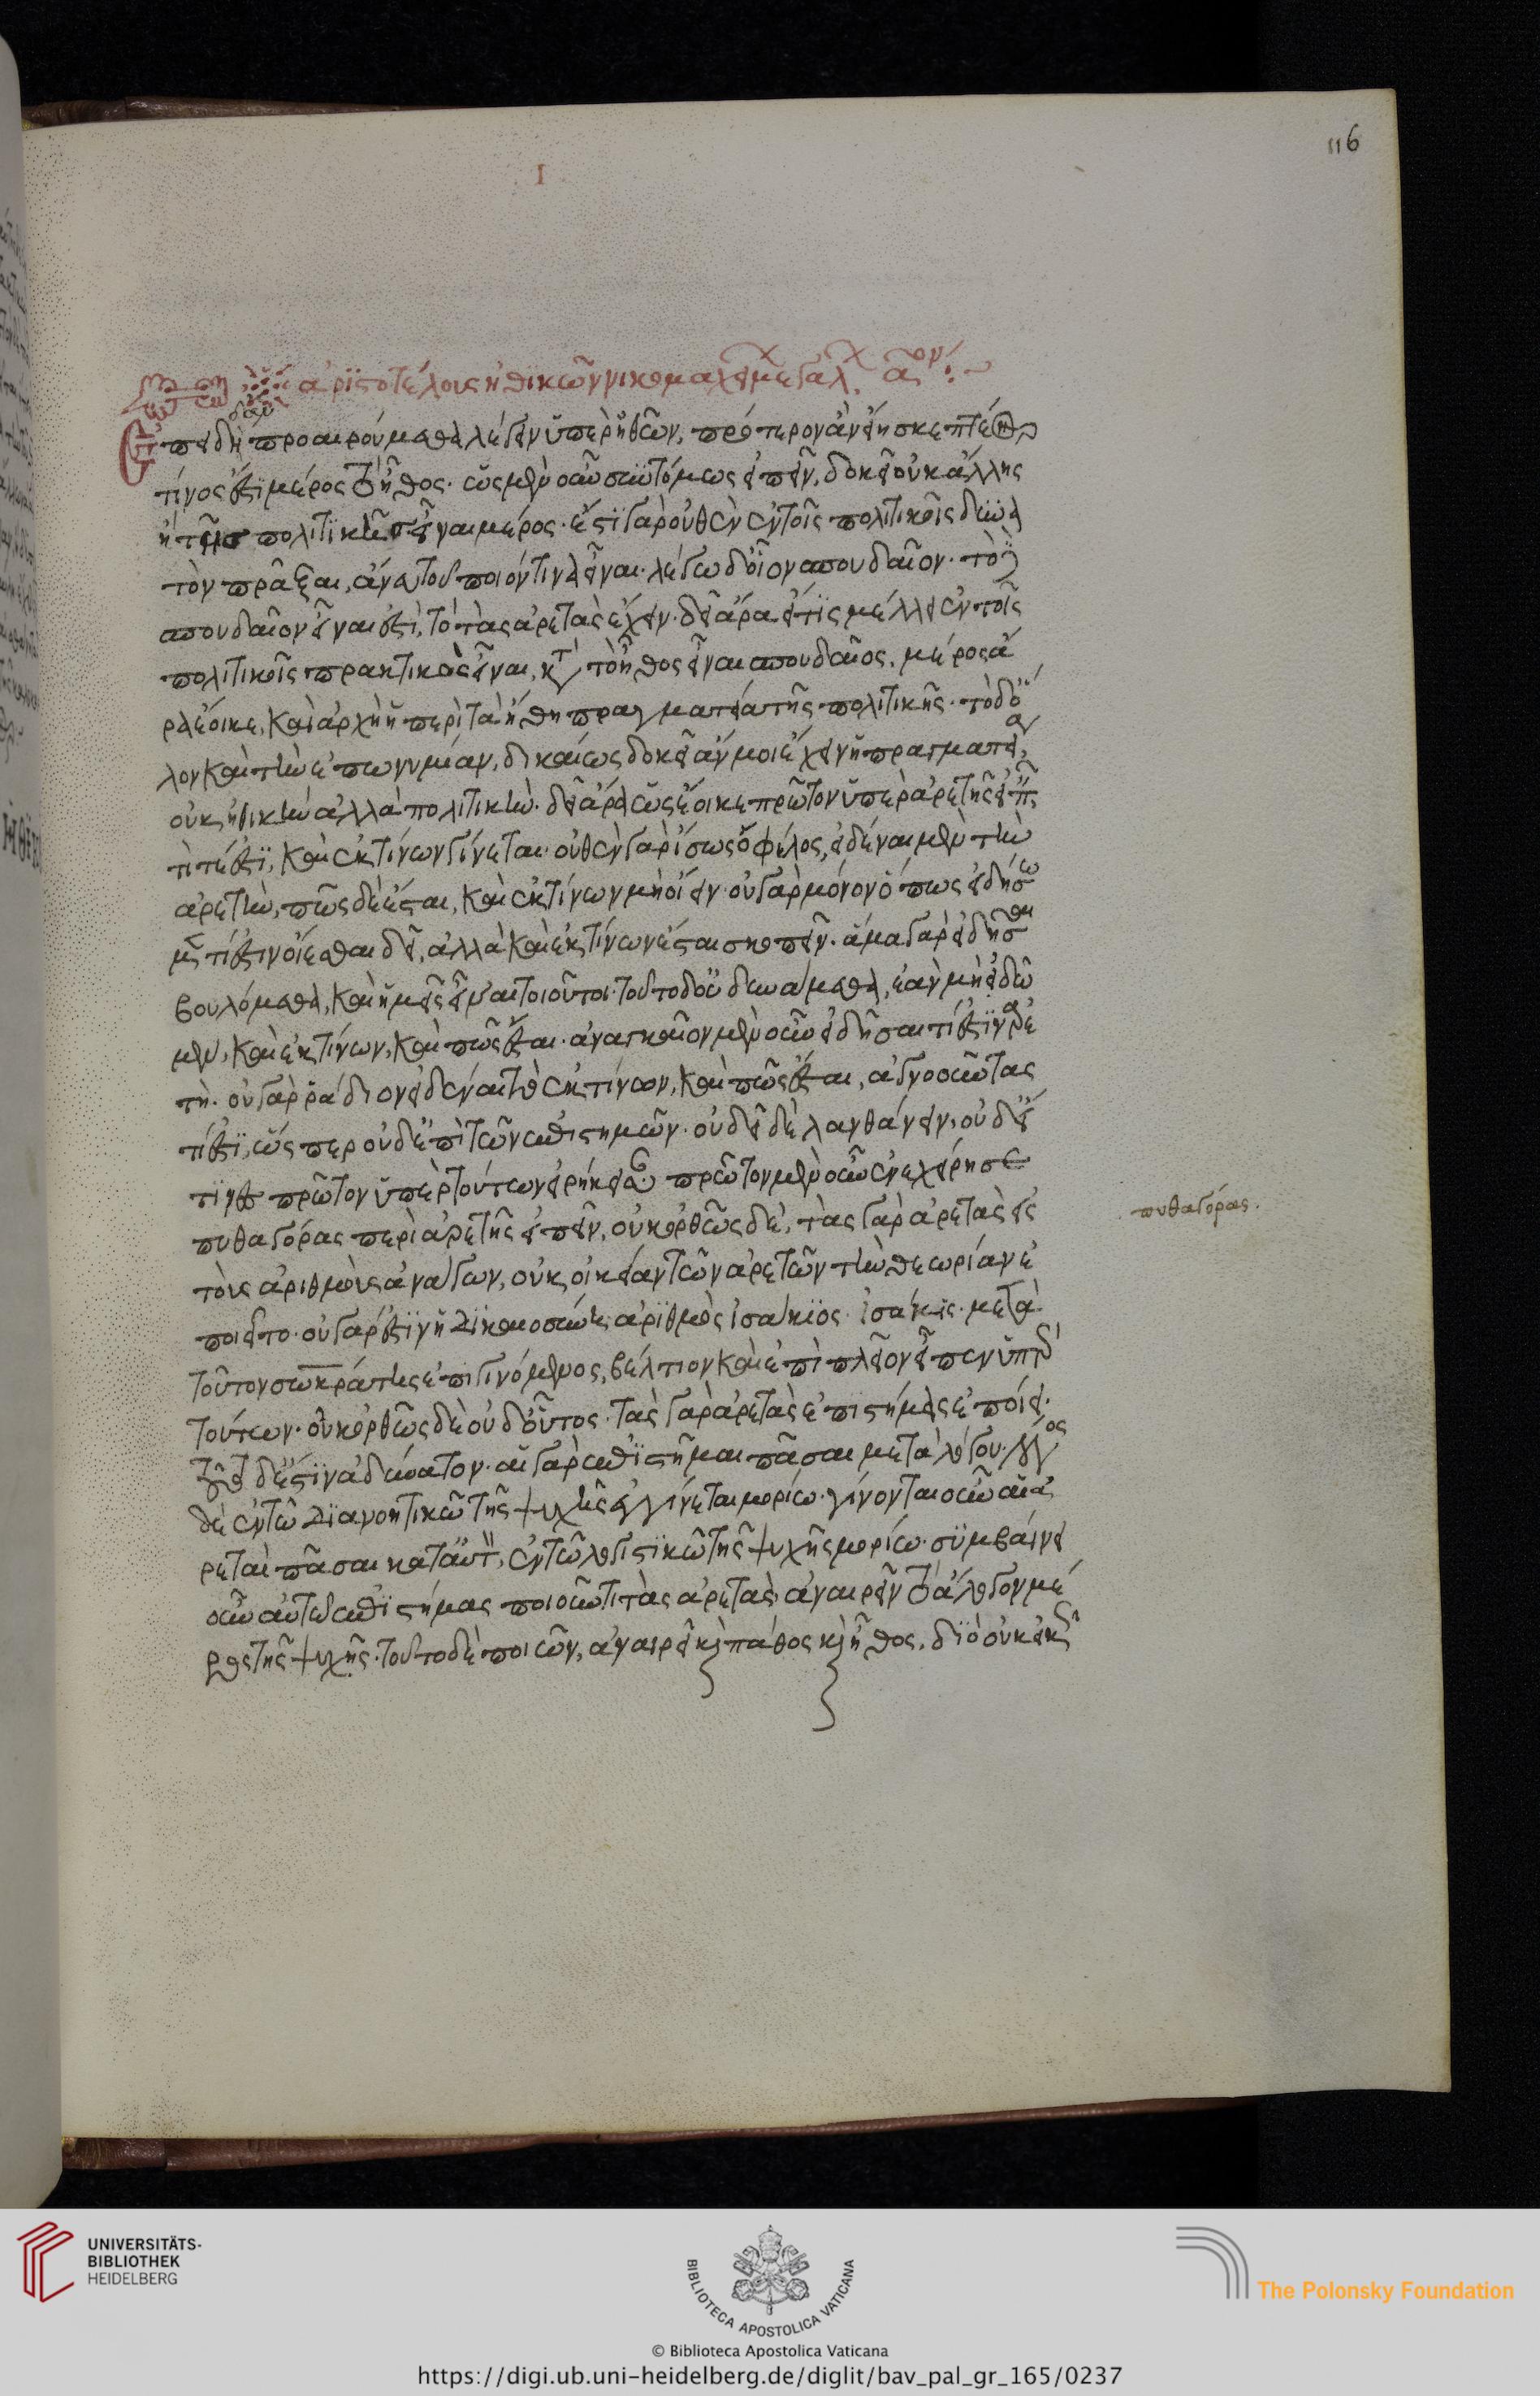 I
116
ἀριστοτέλους ἠθικῶν νικομαχείων μεγάλων αον
Ἐπειδὴ προαιρούμεθα λέγειν ὑπὲρ ἠθῶν, πρότερον ἂν εἴη σκεπτέον
τίνος ἐστὶ μέρος τὸ ἦθος. ὡς μὲν οὖν συντόμως εἰπεῖν, δοκεῖ οὐκ ἄλλης
ἢ τῆς πολιτικῆς εἶναι μέρος. ἔστι γὰρ οὐθὲν ἐν τοῖς πολιτικοῖς δυνα
τὸν πρᾶξαι, ἄνευ τοῦ ποιόν τινα εἶναι. λέγω δ' οἷον σπουδαῖον. τὸ δὲ
σπουδαῖον εἶναι ἐστὶ, τὸ τὰς ἀρετὰς ἔχειν. δεῖ ἄρα εἴ τις μέλλει ἐν τοῖς
πολιτικοῖς πρακτικὸς εἶναι, κατὰ τὸ ἦθος εἶναι σπουδαῖος. μέρος ἄ
ρα ἔοικε, καὶ ἀρχὴ ἡ περὶ τὰ ἤθη πραγματεία τῆς πολιτικῆς. τὸ δ' ὅ
λον καὶ τὴν ἐπωνυμίαν, δικαίως δοκεῖ ἄν μοι ἔχειν ἡ πραγματεία,
οὐκ ἠθικὴν ἀλλὰ πολιτικήν. δεῖ ἄρα ὡς ἔοικε πρῶτον ὑπὲρ ἀρετῆς εἰπεῖν
τί τέ ἐστι, καὶ ἐκ τίνων γίνεται. οὐθὲν γὰρ ἴσως ὄφελος, εἰδέναι μὲν τὴν
ἀρετὴν, πῶς δὲ ἔσται, καὶ ἐκ τίνων μὴ οὐ γὰρ μόνον ὅπως εἰδήσω
μεν τί ἐστιν οἴεσθαι δεῖ, ἀλλὰ καὶ ἐκ τίνων ἔσται σκοπεῖν. ἅμα γὰρ εἰδῆσαι
βουλόμεθα, καὶ ἡμεῖς εἶναι τοιοῦτοι. τοῦτο δ' οὐ δυνάμεθα, ἐὰν μὴ εἰδῶ
μεν, καὶ ἐκ τίνων, καὶ πῶς ἔσται. ἀναγκαῖον μὲν οὖν εἰδῆσαι τί ἐστιν ἀρε
τή. οὐ γὰρ ῥάδιον εἰδέναι τὸ ἐκ τίνων, καὶ πῶς ἔσται, ἀγνοοῦντας
τί ἐστι, ὥσπερ οὐδ' ἐπὶ τῶν ἐπιστημῶν. οὐ δεῖ δὲ λανθάνειν, οὐδ' εἴ
τις πρῶτον ὑπὲρ τούτων εἴρηκεν. πρῶτον μὲν οὖν ἐνεχείρησε
πυθαγόρας περὶ ἀρετῆς εἰπεῖν, οὐκ ὀρθῶς δέ, τὰς γὰρ ἀρετὰς εἰς
πυθαγόρας.
τοὺς ἀριθμοὺς ἀνάγων, οὐκ οἰκείαν τῶν ἀρετῶν τὴν θεωρίαν ἐ
ποιεῖτο. οὐ γάρ ἐστιν ἡ δικαιοσύνη ἀριθμὸς ἰσάκις ἴσος. μετὰ
τοῦτον σωκράτης ἐπιγινόμενος, βέλτιον καὶ ἐπὶ πλεῖον εἶπεν ὑπὲρ
τούτων. οὐκ ὀρθῶς δὲ οὐδ' οὗτος. τὰς γὰρ ἀρετὰς ἐπιστήμας ἐποίει.
τοῦτο δ' ἐστὶν ἀδύνατον. αἱ γὰρ ἐπιστῆμαι πᾶσαι μετὰ λόγου. λόγος
δὲ ἐν τῷ διανοητικῷ τῆς ψυχῆς ἐγγίνεται μορίῳ. γίνονται οὖν αἱ ἀ
ρεταὶ πᾶσαι κατ' αὐτὸν, ἐν τῷ λογιστικῷ τῆς ψυχῆς μορίῳ. συμβαίνει
οὖν αὐτῷ ἐπιστήμας ποιοῦντι τὰς ἀρετὰς ἀναιρεῖν τὸ ἄλογον μέ
ρος τῆς ψυχῆς. τοῦτο δὲ ποιῶν, ἀναιρεῖ καὶ πάθος καὶ ἦθος, διὸ οὐκ
UNIVERSITÄTS-
BIBLIOTHEK
HEIDELBERG
BIBLIOTECA APOSTOLICA VATICANA
The Polonsky Foundation
© Biblioteca Apostolica Vaticana
https://digi.ub.uni-heidelberg.de/diglit/bav_pal_gr_165/0237